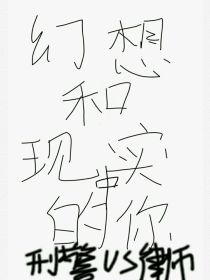 幻想
和
现实
的你
刑警VS律师